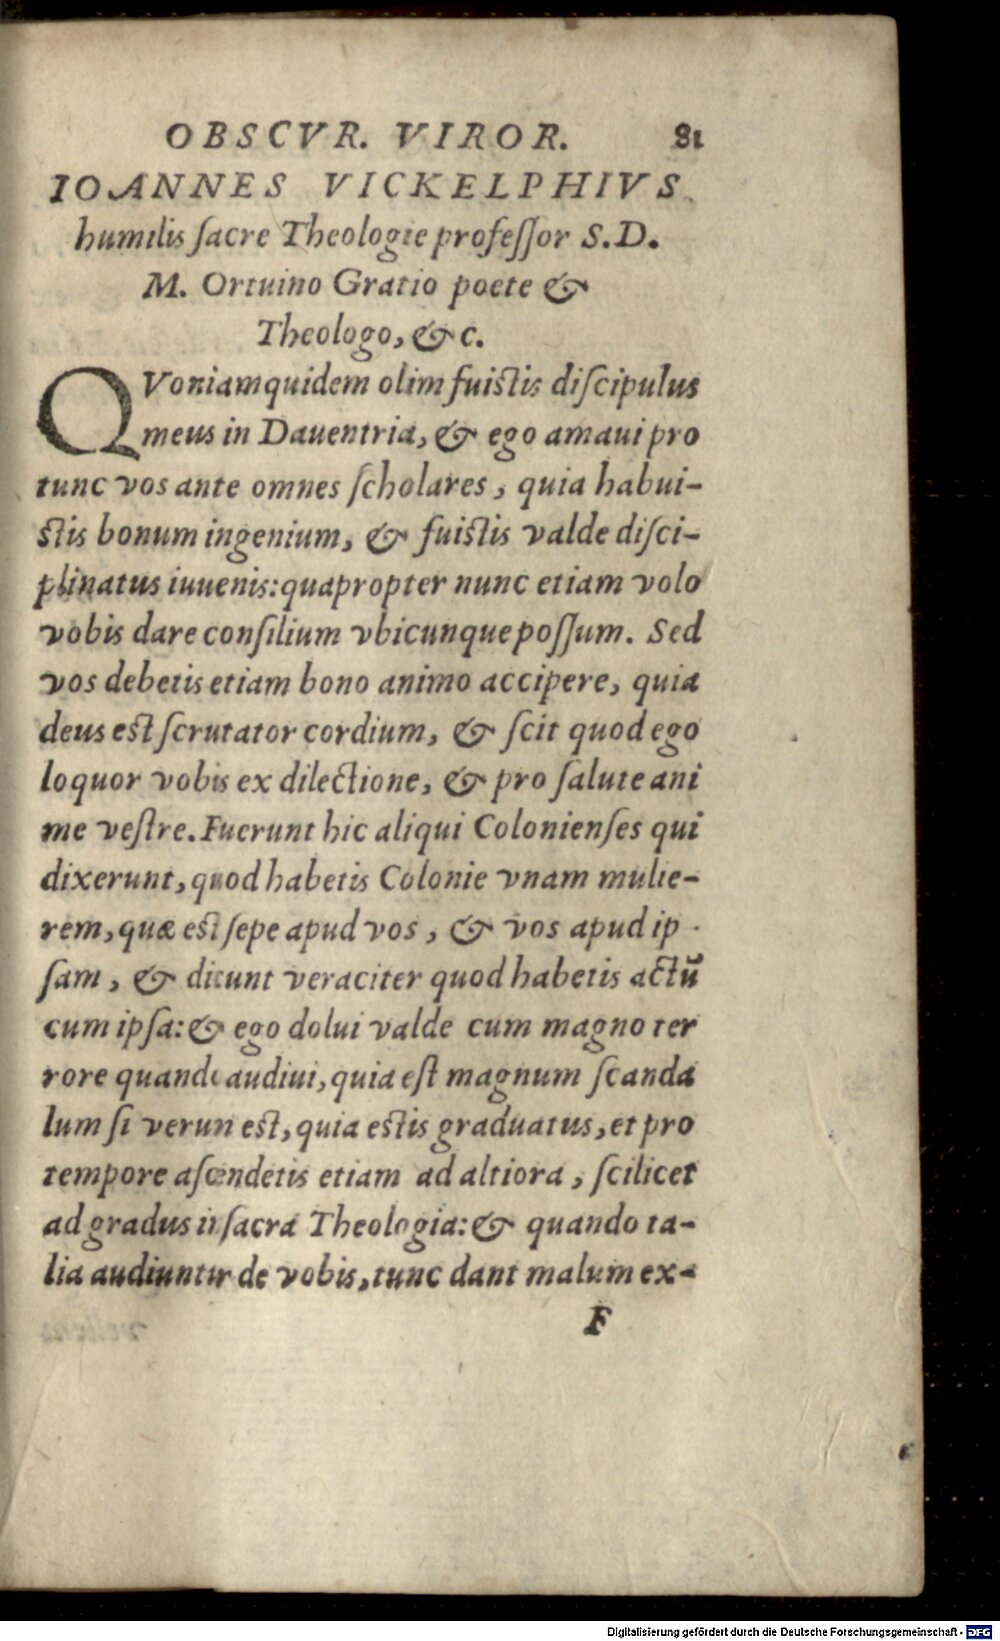 OBSCVR. VIROR. 81
IOANNES VICKELPHIVS
humilis ſacre Theologie profeſſor S.D.
M. Ortuino Gratio poete &
Theologo, & c.
QVoniamquidem olim fuiſtis diſcipulus
meus in Dauentria, & ego amaui pro
tunc vos ante omnes ſcholares, quia habui-
ſtis bonum ingenium, & fuiſtis valde diſci-
plinatus iuuenis: quapropter nunc etiam volo
vobis dare conſilium vbicunque poſſum. Sed
vos debetis etiam bono animo accipere, quia
deus eſt ſcrutator cordium, & ſcit quod ego
loquor vobis ex dilectione, & pro ſalute ani
me veſtre. Fuerunt hic aliqui Colonienſes qui
dixerunt, quod habetis Colonie vnam mulie-
rem, quæ eſt ſepe apud vos, & vos apud ip
ſam, & dicunt veraciter quod habetis actū
cum ipſa: & ego dolui valde cum magno ter
rore quando audiui, quia eſt magnum ſcanda
lum ſi verum eſt, quia eſtis graduatus, et pro
tempore aſcendetis etiam ad altiora, ſcilicet
ad gradus in ſacra Theologia: & quando ta-
lia audiuntur de vobis, tunc dant malum ex-
F
Digitalisierung gefördert durch die Deutsche Forschungsgemeinschaft - DFG